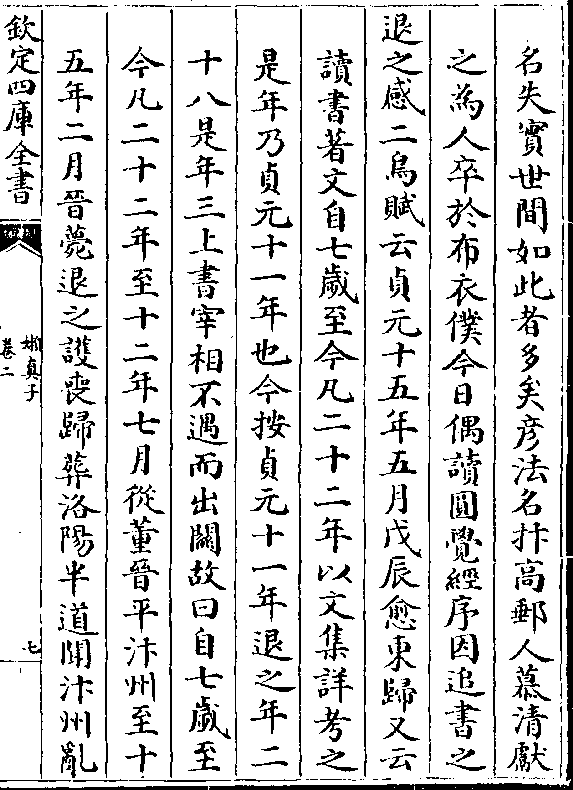 名失實世間如此者多矣彦法名抃高郵人慕清獻
之為人卒於布衣僕今日偶讀圓覺經序因追書之
退之感二鳥賦云貞元十五年五月戊辰愈東歸又云
讀書著文自七歲至今凡二十二年以文集詳考之
是年乃貞元十一年也今按貞元十一年退之年二
十八是年三上書宰相不遇而出關故曰自七歲至
今凡二十二年至十二年七月從董晉平汴州至十
五年二月晉薨退之護喪歸葬洛陽半道聞汴州亂
欽定四庫全書
嬾真子
卷二
七